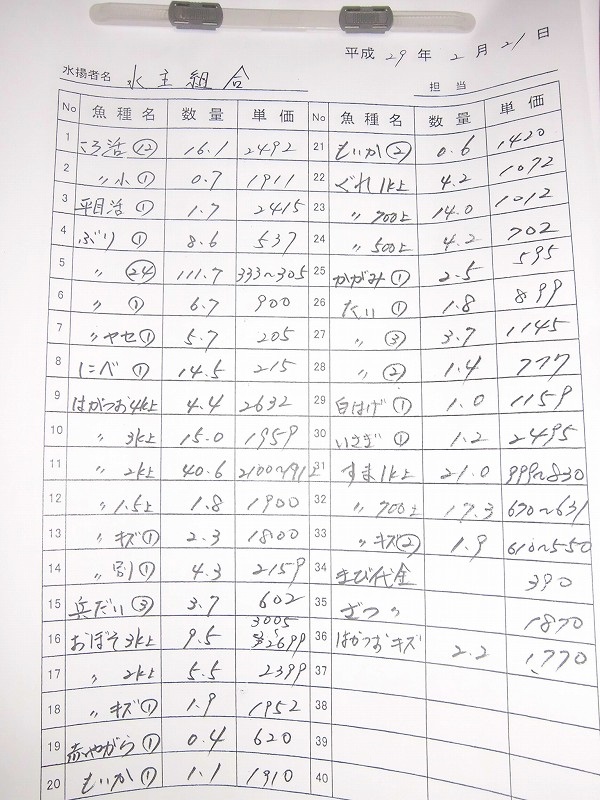 平成 29 年 2 月 21 日
水揚者名 水主組合
担当
No 魚種名 数量 単価
1 ころ活 ⑫ 16.1 2492
2 〃小 ① 0.7 1911
3 平目活 ① 1.7 2415
4 ぶり ① 8.6 537
5 〃 ㉔ 111.7 333~305
6 〃 ① 6.7 900
7 〃ヤセ ① 5.7 205
8 にべ ① 14.5 215
9 はがつお4k上 4.4 2632
10 〃 3k上 15.0 1959
11 〃 2k上 40.6 2100~1912
12 〃 1.5上 1.8 1900
13 〃キズ ① 2.3 1800
14 〃別 ① 4.3 2159
15 兵だい ③ 3.7 602
16 おぼそ3k上 9.5 3005~2699
17 〃 2k上 5.5 2399
18 〃キズ ① 1.9 1952
19 赤やがら ① 0.4 620
20 もいか ① 1.1 1910
No 魚種名 数量 単価
21 もいか ② 0.6 1420
22 ぐれ 1k上 4.2 1072
23 〃 700上 14.0 1012
24 〃 500上 4.2 702
25 かがみ ① 2.5 595
26 たい ① 1.8 899
27 〃 ③ 3.7 1145
28 〃 ② 1.4 777
29 白はげ ① 1.0 1159
30 いさぎ ① 1.2 2495
31 すま1k上 21.0 999~830
32 〃 700上 17.3 670~631
33 〃キズ ② 1.9 610~550
34 まび代金 390
35 ざつ 〃 1870
36 はがつおキズ 2.2 1,770
37
38
39
40